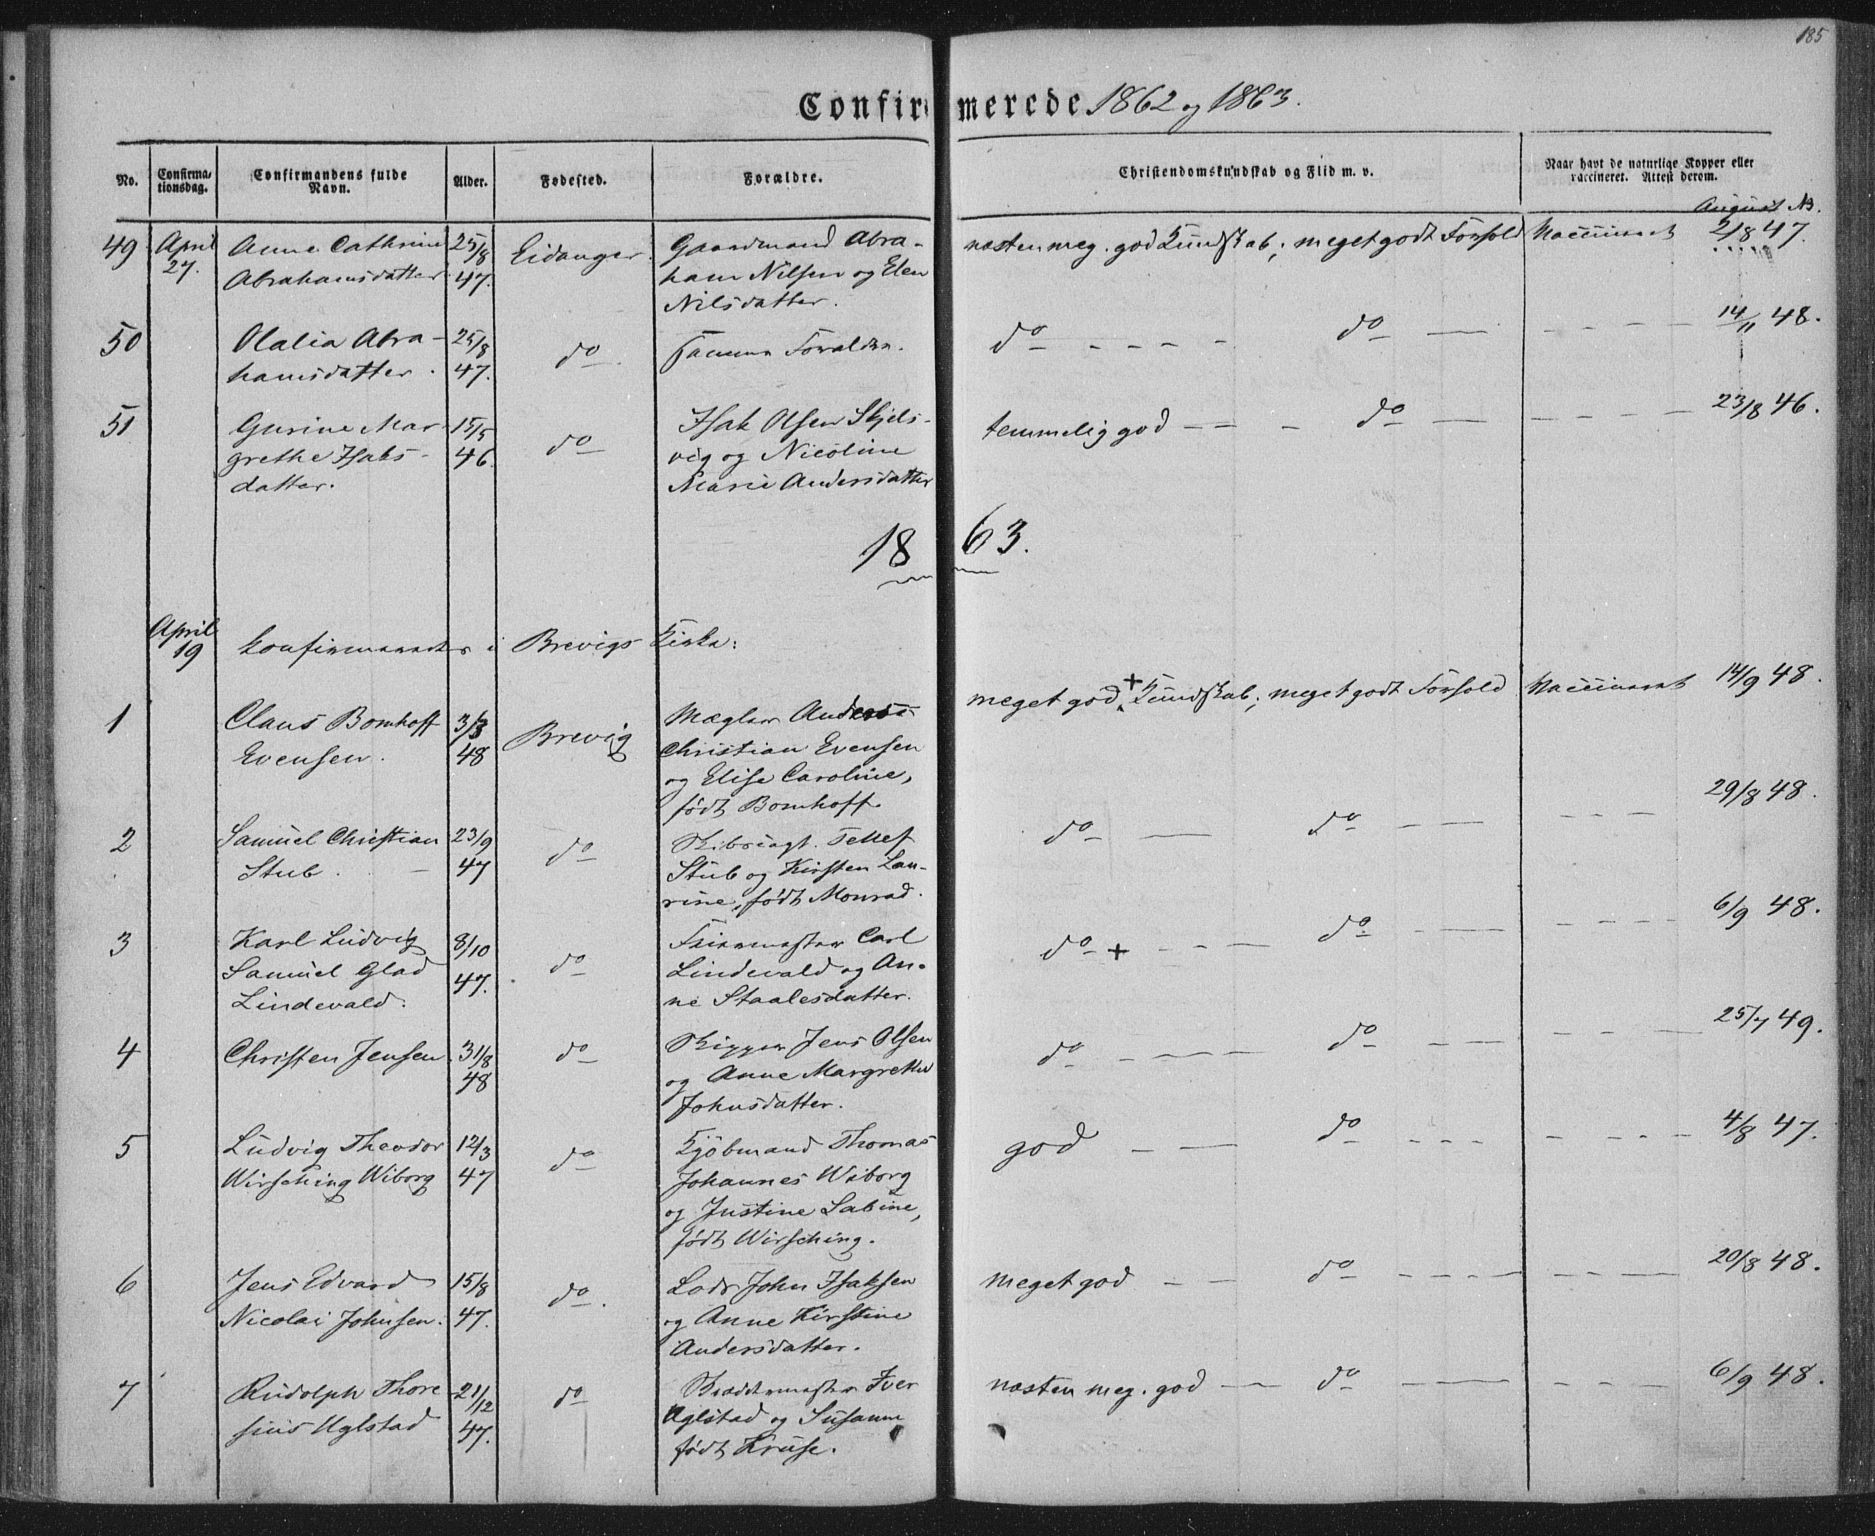 185
Confirmerede 1862 og 1863.
No. Confirmationsdag. Confirmandens fulde Navn. Alder. Fødested. Forældre. Christendomskundskab og Flid m. v. Naar havt de naturlige Kopper eller vaccineret. Attest derom.
August N.
49 April 27. Anne Cathrine 25/8 Eidanger. Gaardmand Abra- næsten meg. god Kundskab; meget godt Forhold Vaccineret 2/8 47.
Abrahamsdatter 47. ham Nilsen og Elen
Nilsdatter.
50 Olalia Abra- 25/8 do Samme Forældre. do do 14/11 48.
hamsdatter. 47.
51 Gurine Mar- 15/5 do Isak Olsen Skjels- temmelig god do 23/8 46.
grethe Isaks- 46. vig og Nicoline
datter. Marie Andersdatter
1863.
April 19 Konfirmerede i Brevigs Kirke:
1 Claus Bomhoff 3/3 Brevig Mægler Anders meget god + Kundskab; meget godt Forhold Vaccineret 14/9 48.
Evensen. 48 Christian Evensen
og Elise Caroline,
født Bomhoff.
2 Samuel Christian 23/9 do Tellef do do 29/8 48.
Stub. 47 Stub og Kirsten Lau-
rine, født Monrad.
3 Karl Ludvig 8/10 do Carl do + do 6/9 48.
Samuel Glad 47. Lindevald og An-
Lindevald. ne Staalesdatter.
4 Christen Jensen 31/8 do Rigger Jens Olsen do do 25/7 49.
48 og Anne Margrethe
Johnsdatter.
5 Ludvig Theodor 12/3 do Kjøbmand Thomas god do 4/8 47.
Wirsching Wiborg 47 Johannes Wiborg
og Justine Sabine,
født Wirsching.
6 Jens Edvard 15/8 do. Lods John Isaksen meget god do 20/8 48.
Nicolai Johnsen. 47. og Anne Kirstine
Andersdatter.
7 Rudolph Thore- 21/12 do Iver næsten meg. god do 6/9 48.
sius Uglstad 47. Uglstad og Susanne
født Kruse.